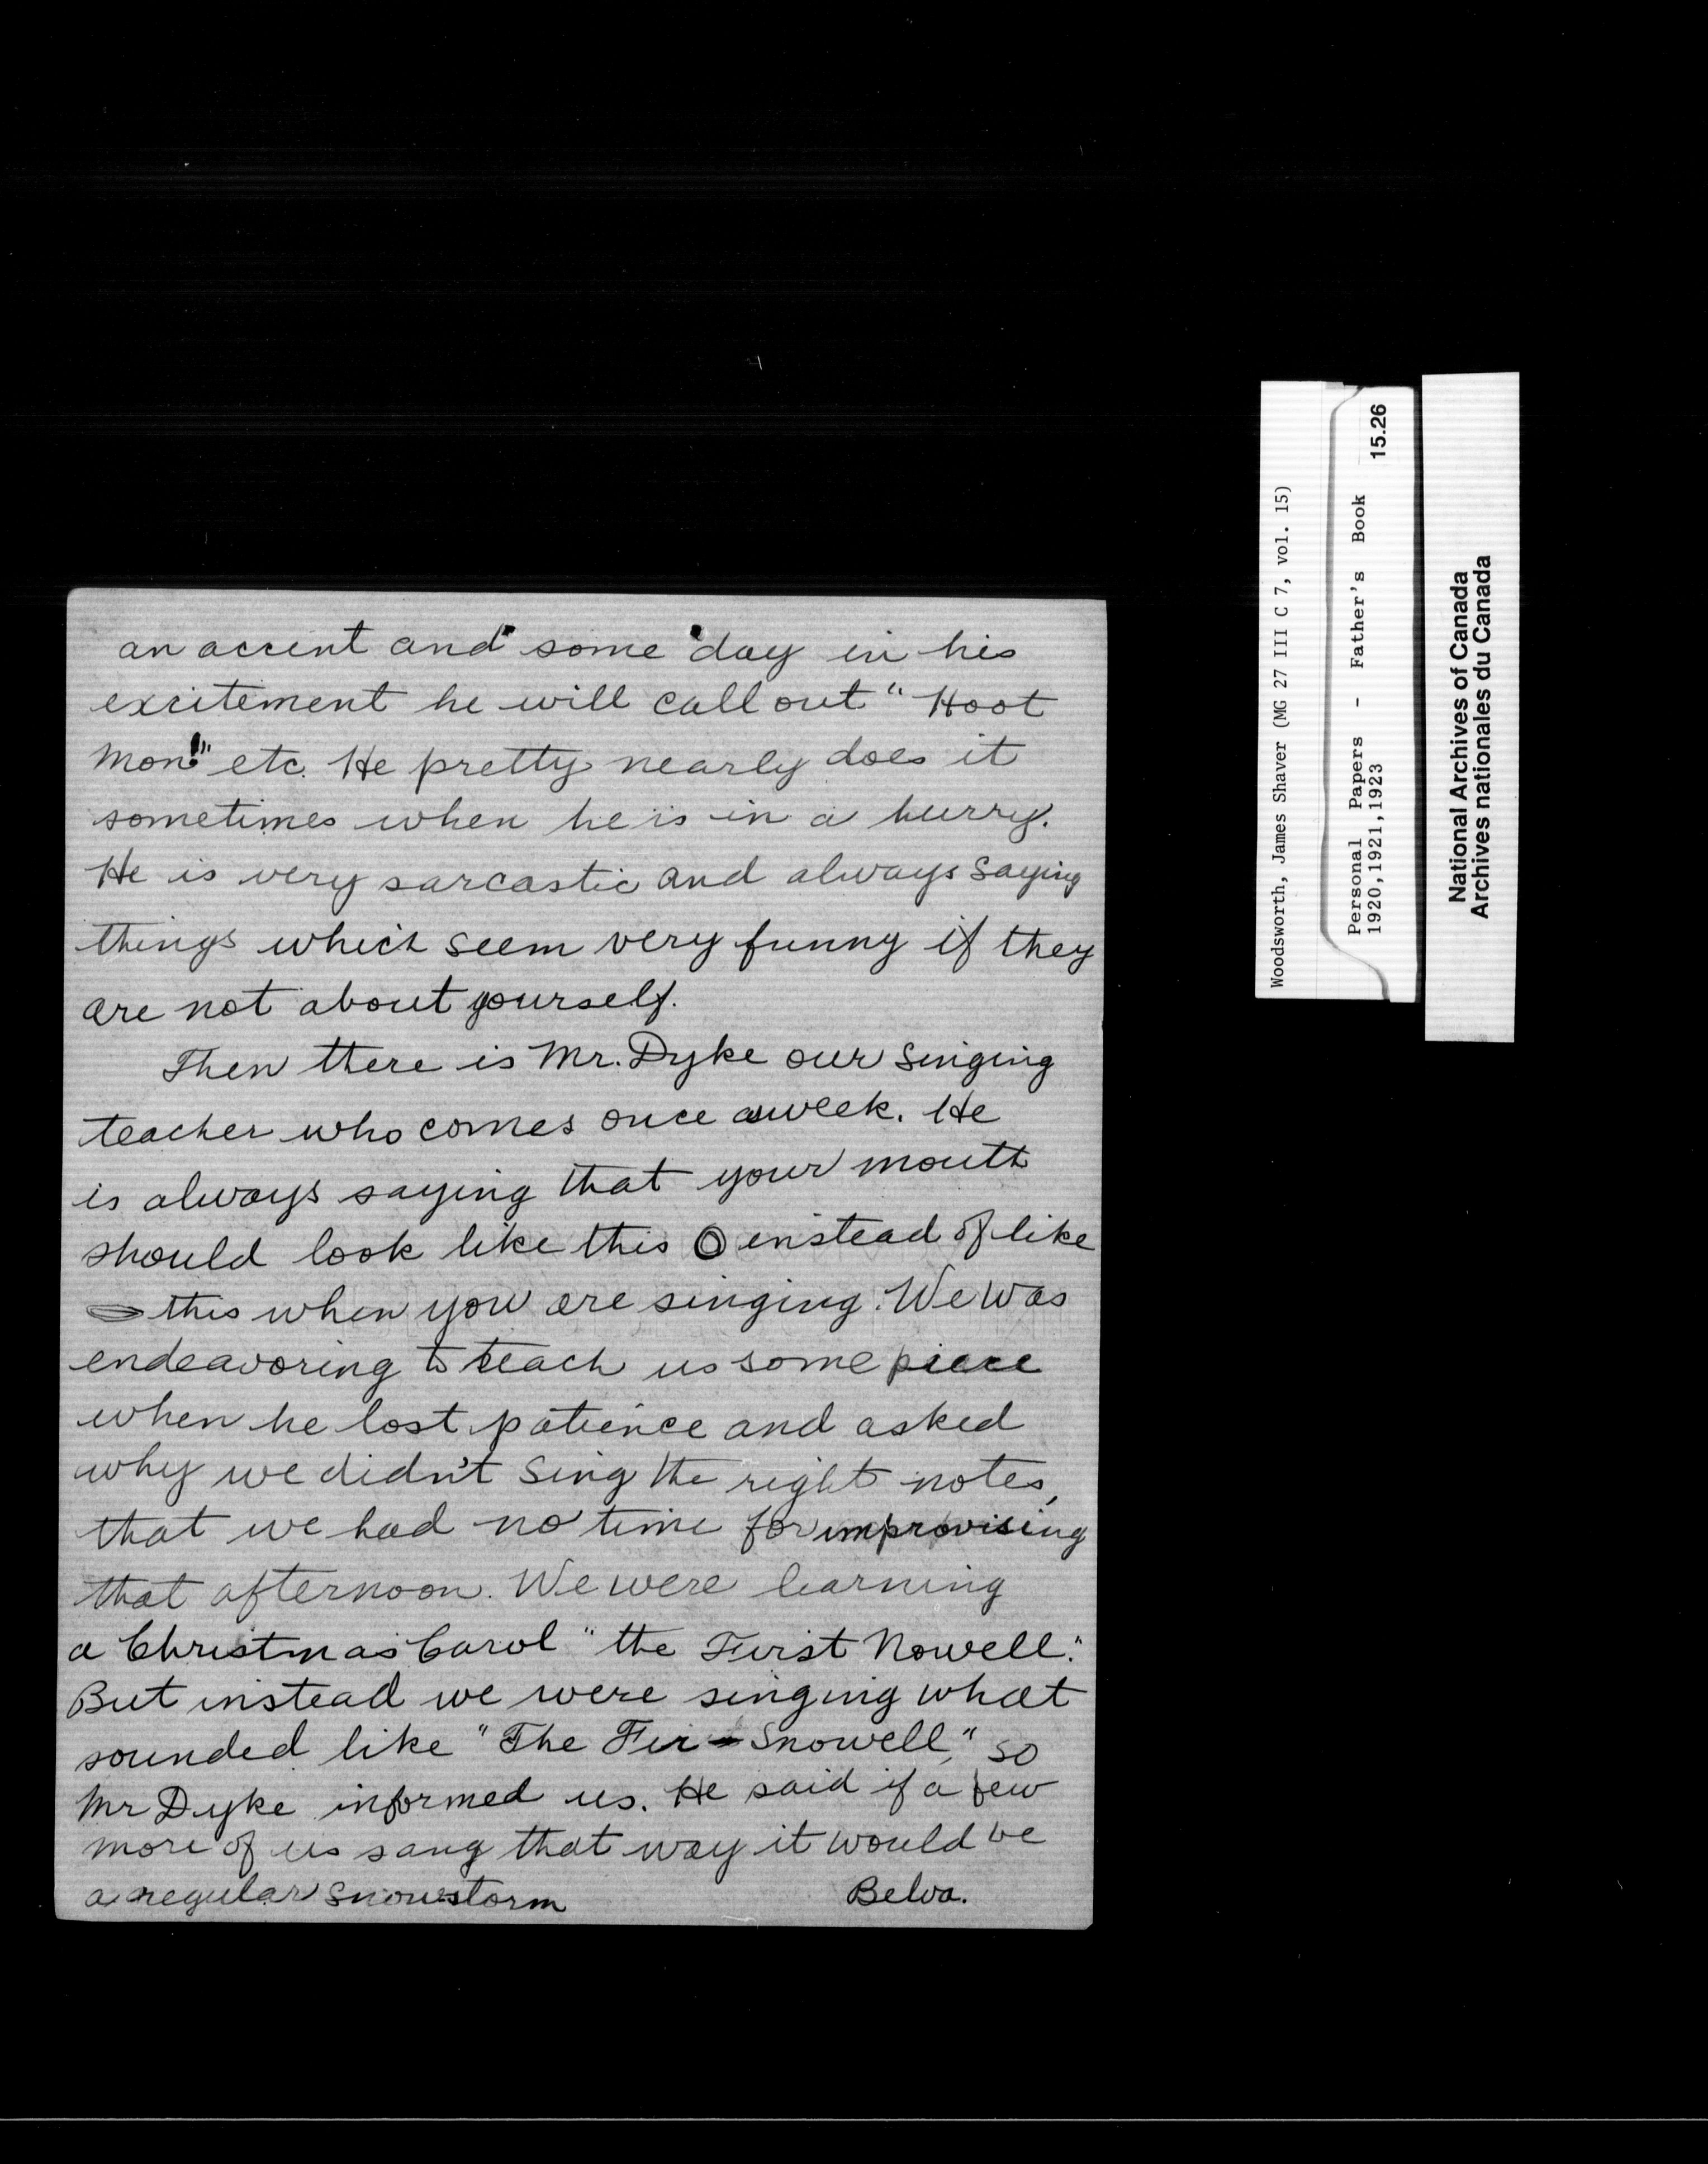 an accent and some day in his
excitement he will call out "Hoot
mon!" etc. He pretty nearly does it
sometimes when he is in a hurry.
He is very sarcastic and always saying
things which seem very funny if they
are not about yourself.
Then there is Mr. Dyke our singing
teacher who comes once a week. He
is always saying that your mouth
should look like this O instead of like
this when you are singing. We was
endeavoring to teach us some piece
when he lost patience and asked
why we didn't sing the right notes,
that we had no time for improvising
that afternoon. We were learning
a Christmas Carol "the First Nowell."
But instead we were singing what
sounded like "The Fir-Snowell," so
Mr Dyke informed us. He said if a few
more of us sang that way it would be
a regular snowstorm
Belva.
Woodsworth, James Shaver (MG 27 III C 7, vol. 15)
Personal Papers - Father's Book
1920,1921,1923
15.26
National Archives of Canada
Archives nationales du Canada